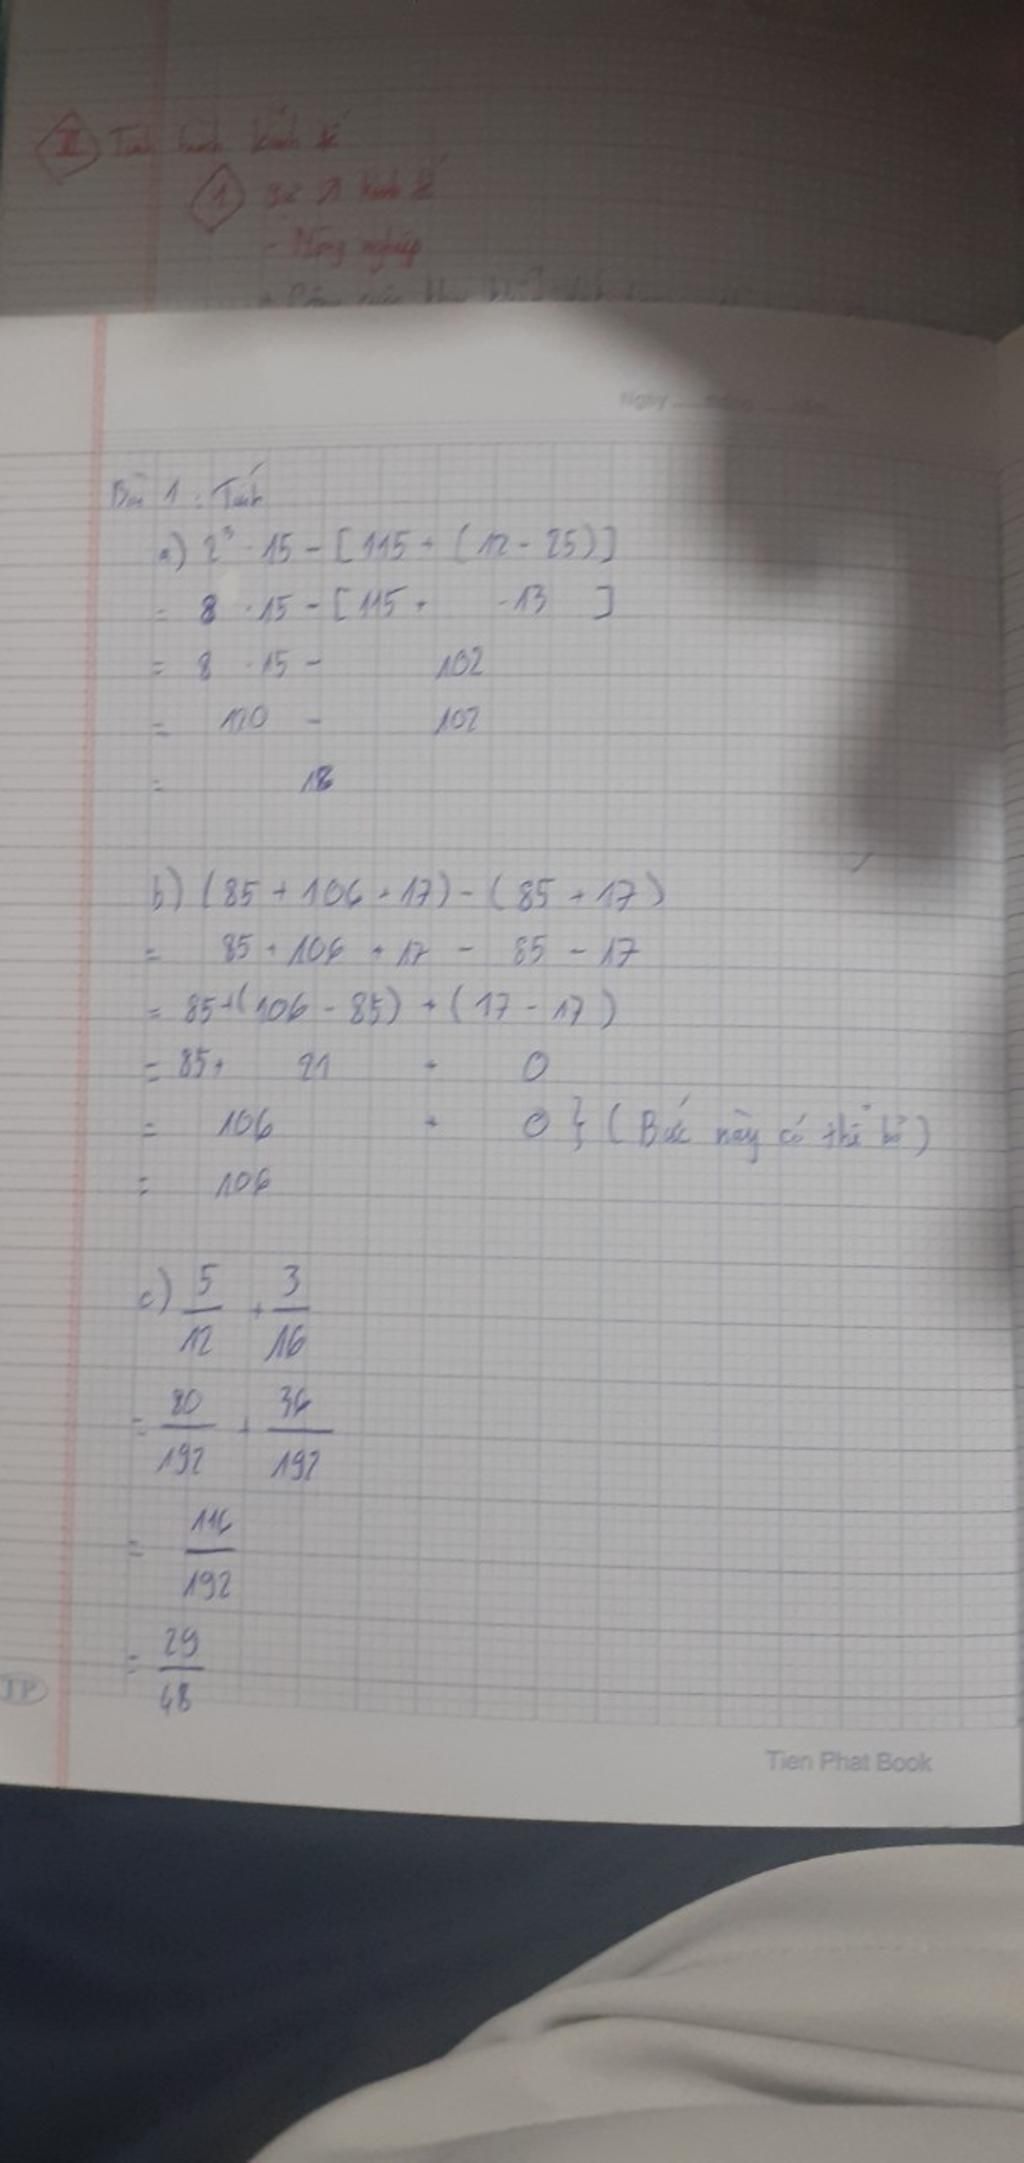 II Tình hình kinh tế
1 kinh tế
- Nông nghiệp
Ngày tháng năm
Bài 1 : Tính
a) 2³ · 15 - [ 115 + ( 12 - 25 ) ]
= 8 · 15 - [ 115 + -13 ]
= 8 · 15 - 102
= 120 - 102
= 18
b) ( 85 + 106 + 17 ) - ( 85 + 17 )
= 85 + 106 + 17 - 85 - 17
= 85 + ( 106 - 85 ) + ( 17 - 17 )
= 85 + 21 + 0
= 106 + 0 } ( Bước này có thể bỏ )
= 106
c) 5/12 + 3/16
= 80/192 + 36/192
= 116/192
= 29/48
TP
Tien Phat Book